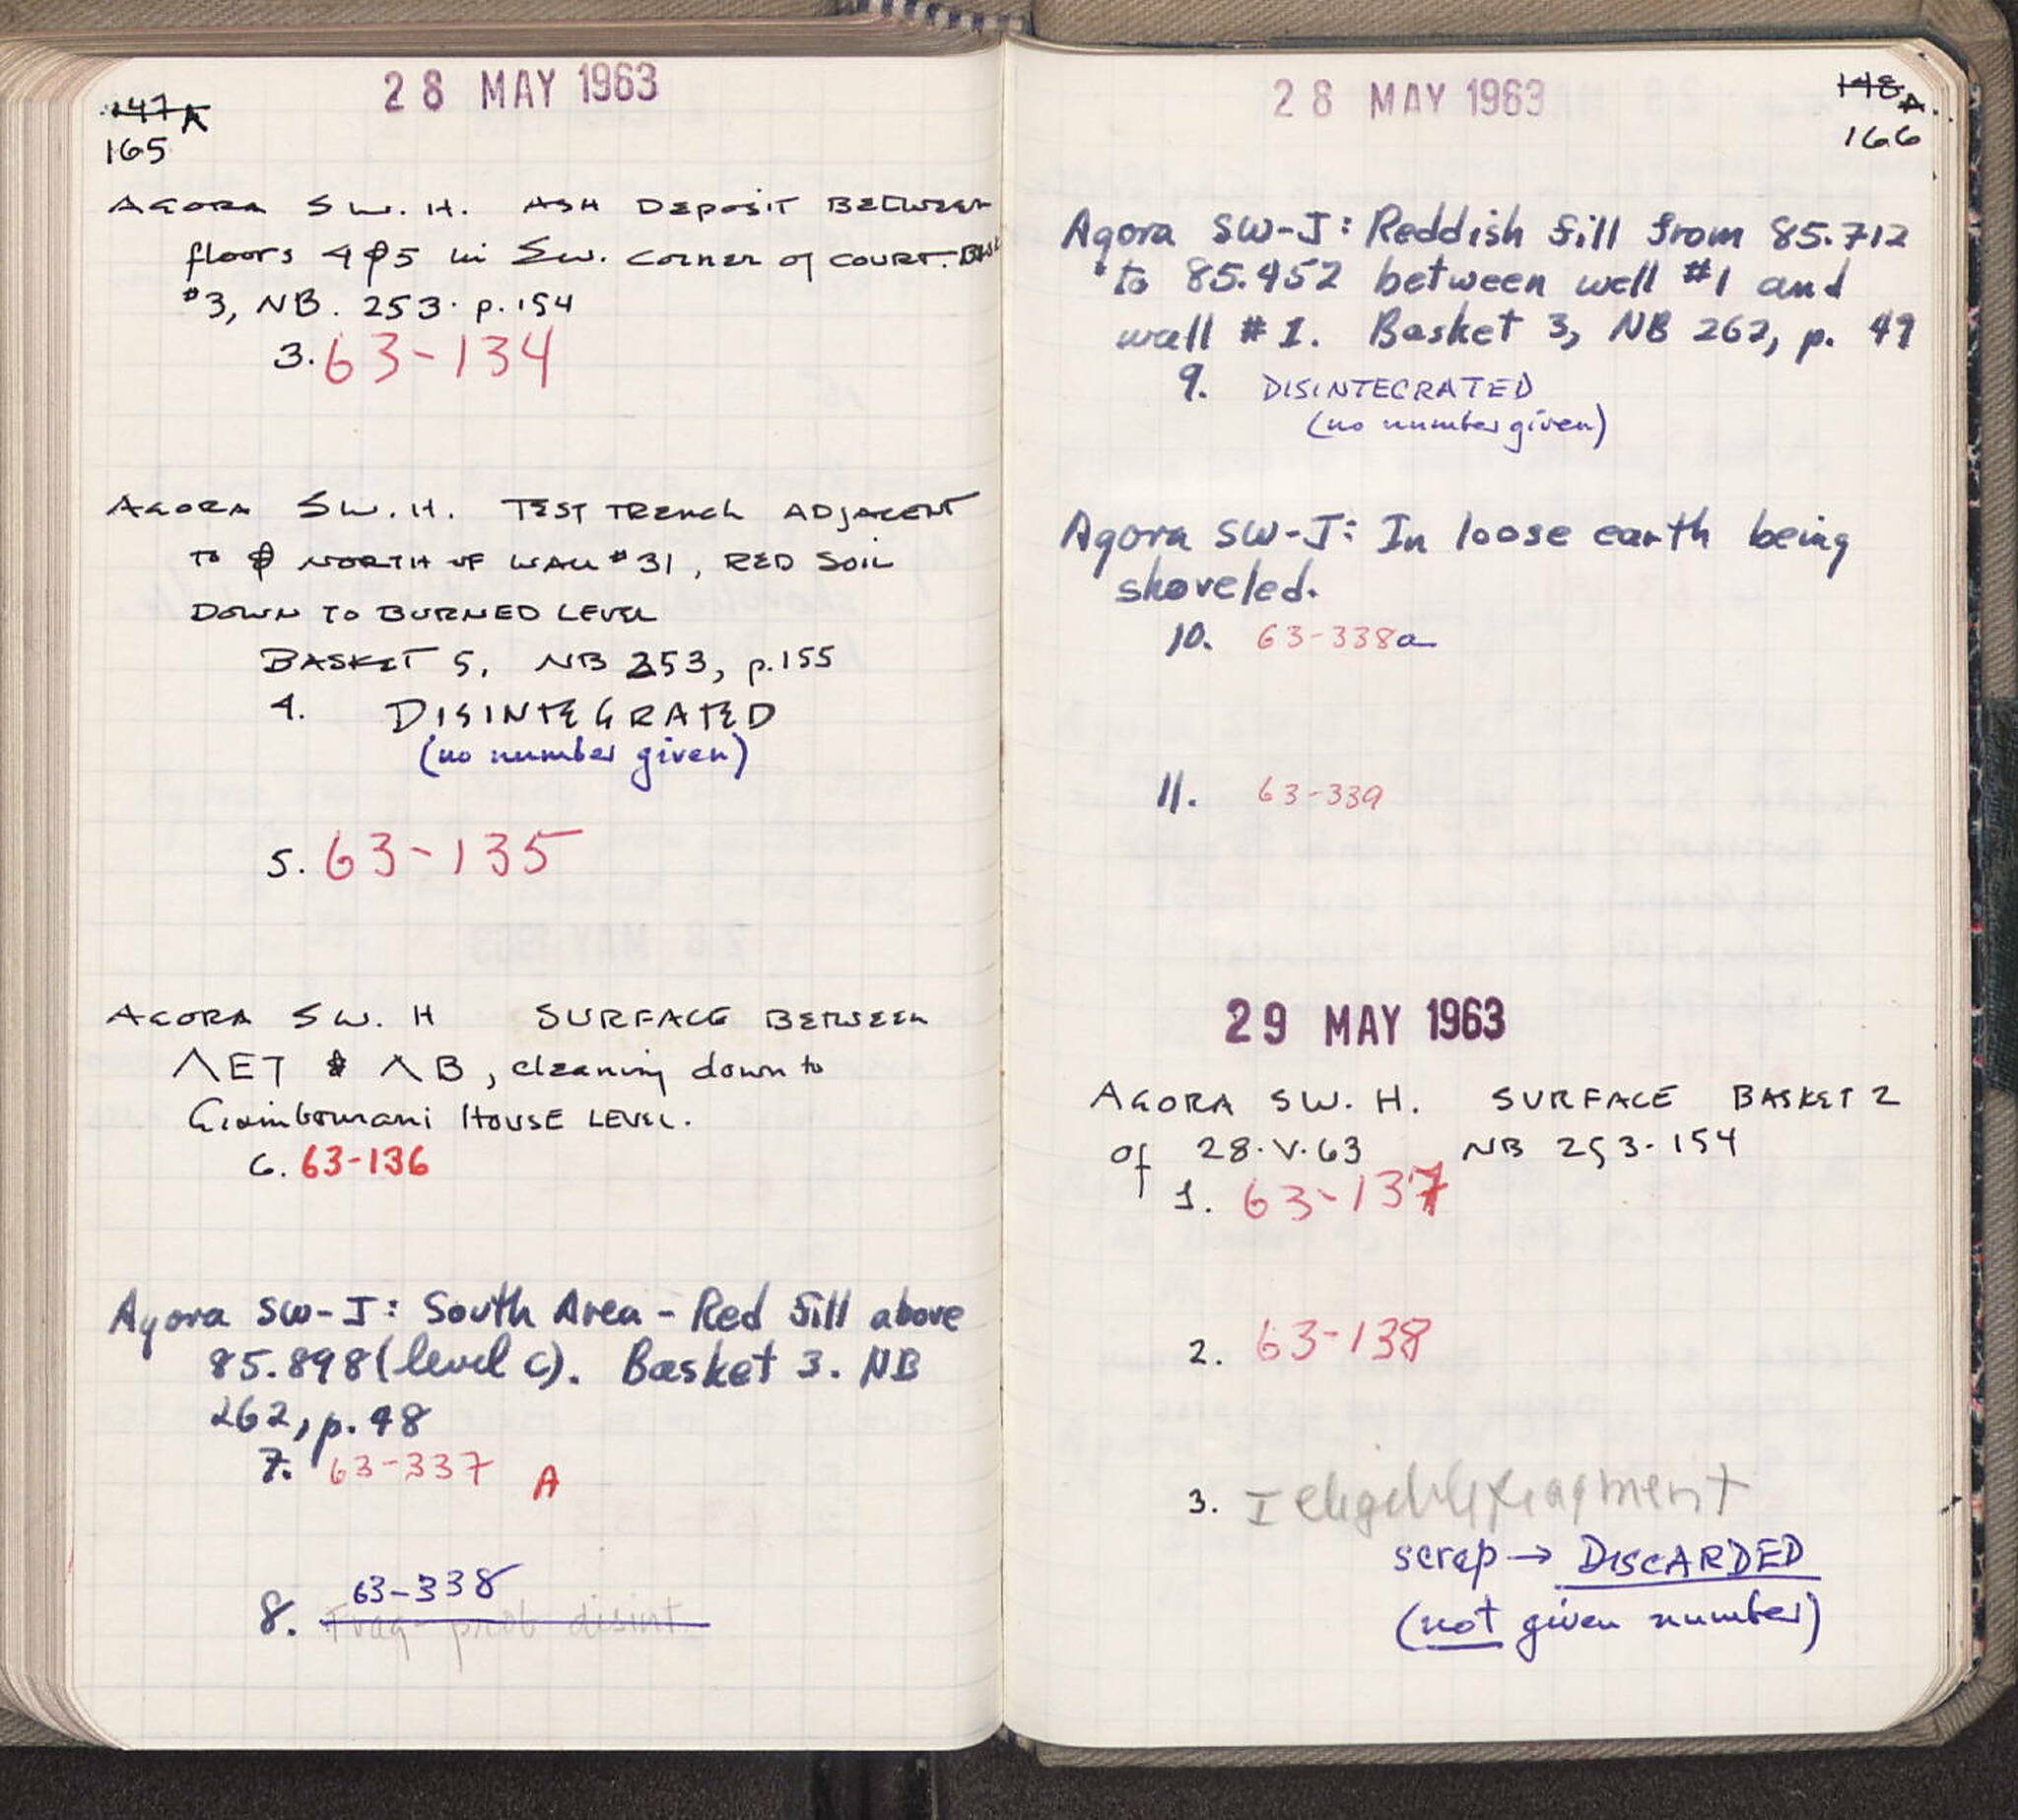 28 MAY 1963
147A
165
AGORA SW. H. ASH DEPOSIT BETWEEN
floors 4 & 5 in SW. corner of court.
#3, NB. 253. p. 154
3. 63-134
AGORA SW. H. TEST TRENCH ADJACENT
TO & NORTH OF WALL #31, RED SOIL
DOWN TO BURNED LEVEL
BASKET 5, NB 253, p. 155
4. DISINTEGRATED
(no number given)
5. 63-135
AGORA SW. H SURFACE BETWEEN
ΛET & ΛB, cleaning down to
HOUSE LEVEL.
6. 63-136
Agora SW-J: South Area - Red fill above
85.898 (level c). Basket 3. NB
262, p. 48
7. 63-337 A
63-338
8. Frag - prob disint
28 MAY 1963
148A.
166
Agora SW-J: Reddish fill from 85.712
to 85.452 between well #1 and
wall #1. Basket 3, NB 262, p. 49
9. DISINTEGRATED
(no number given)
Agora SW-J: In loose earth being
shoveled.
10. 63-338a
11. 63-339
29 MAY 1963
AGORA SW. H. SURFACE BASKET 2
of 28.V.63 NB 253-154
1. 63-137
2. 63-138
3. I fragment
scrap → DISCARDED
(not given number)